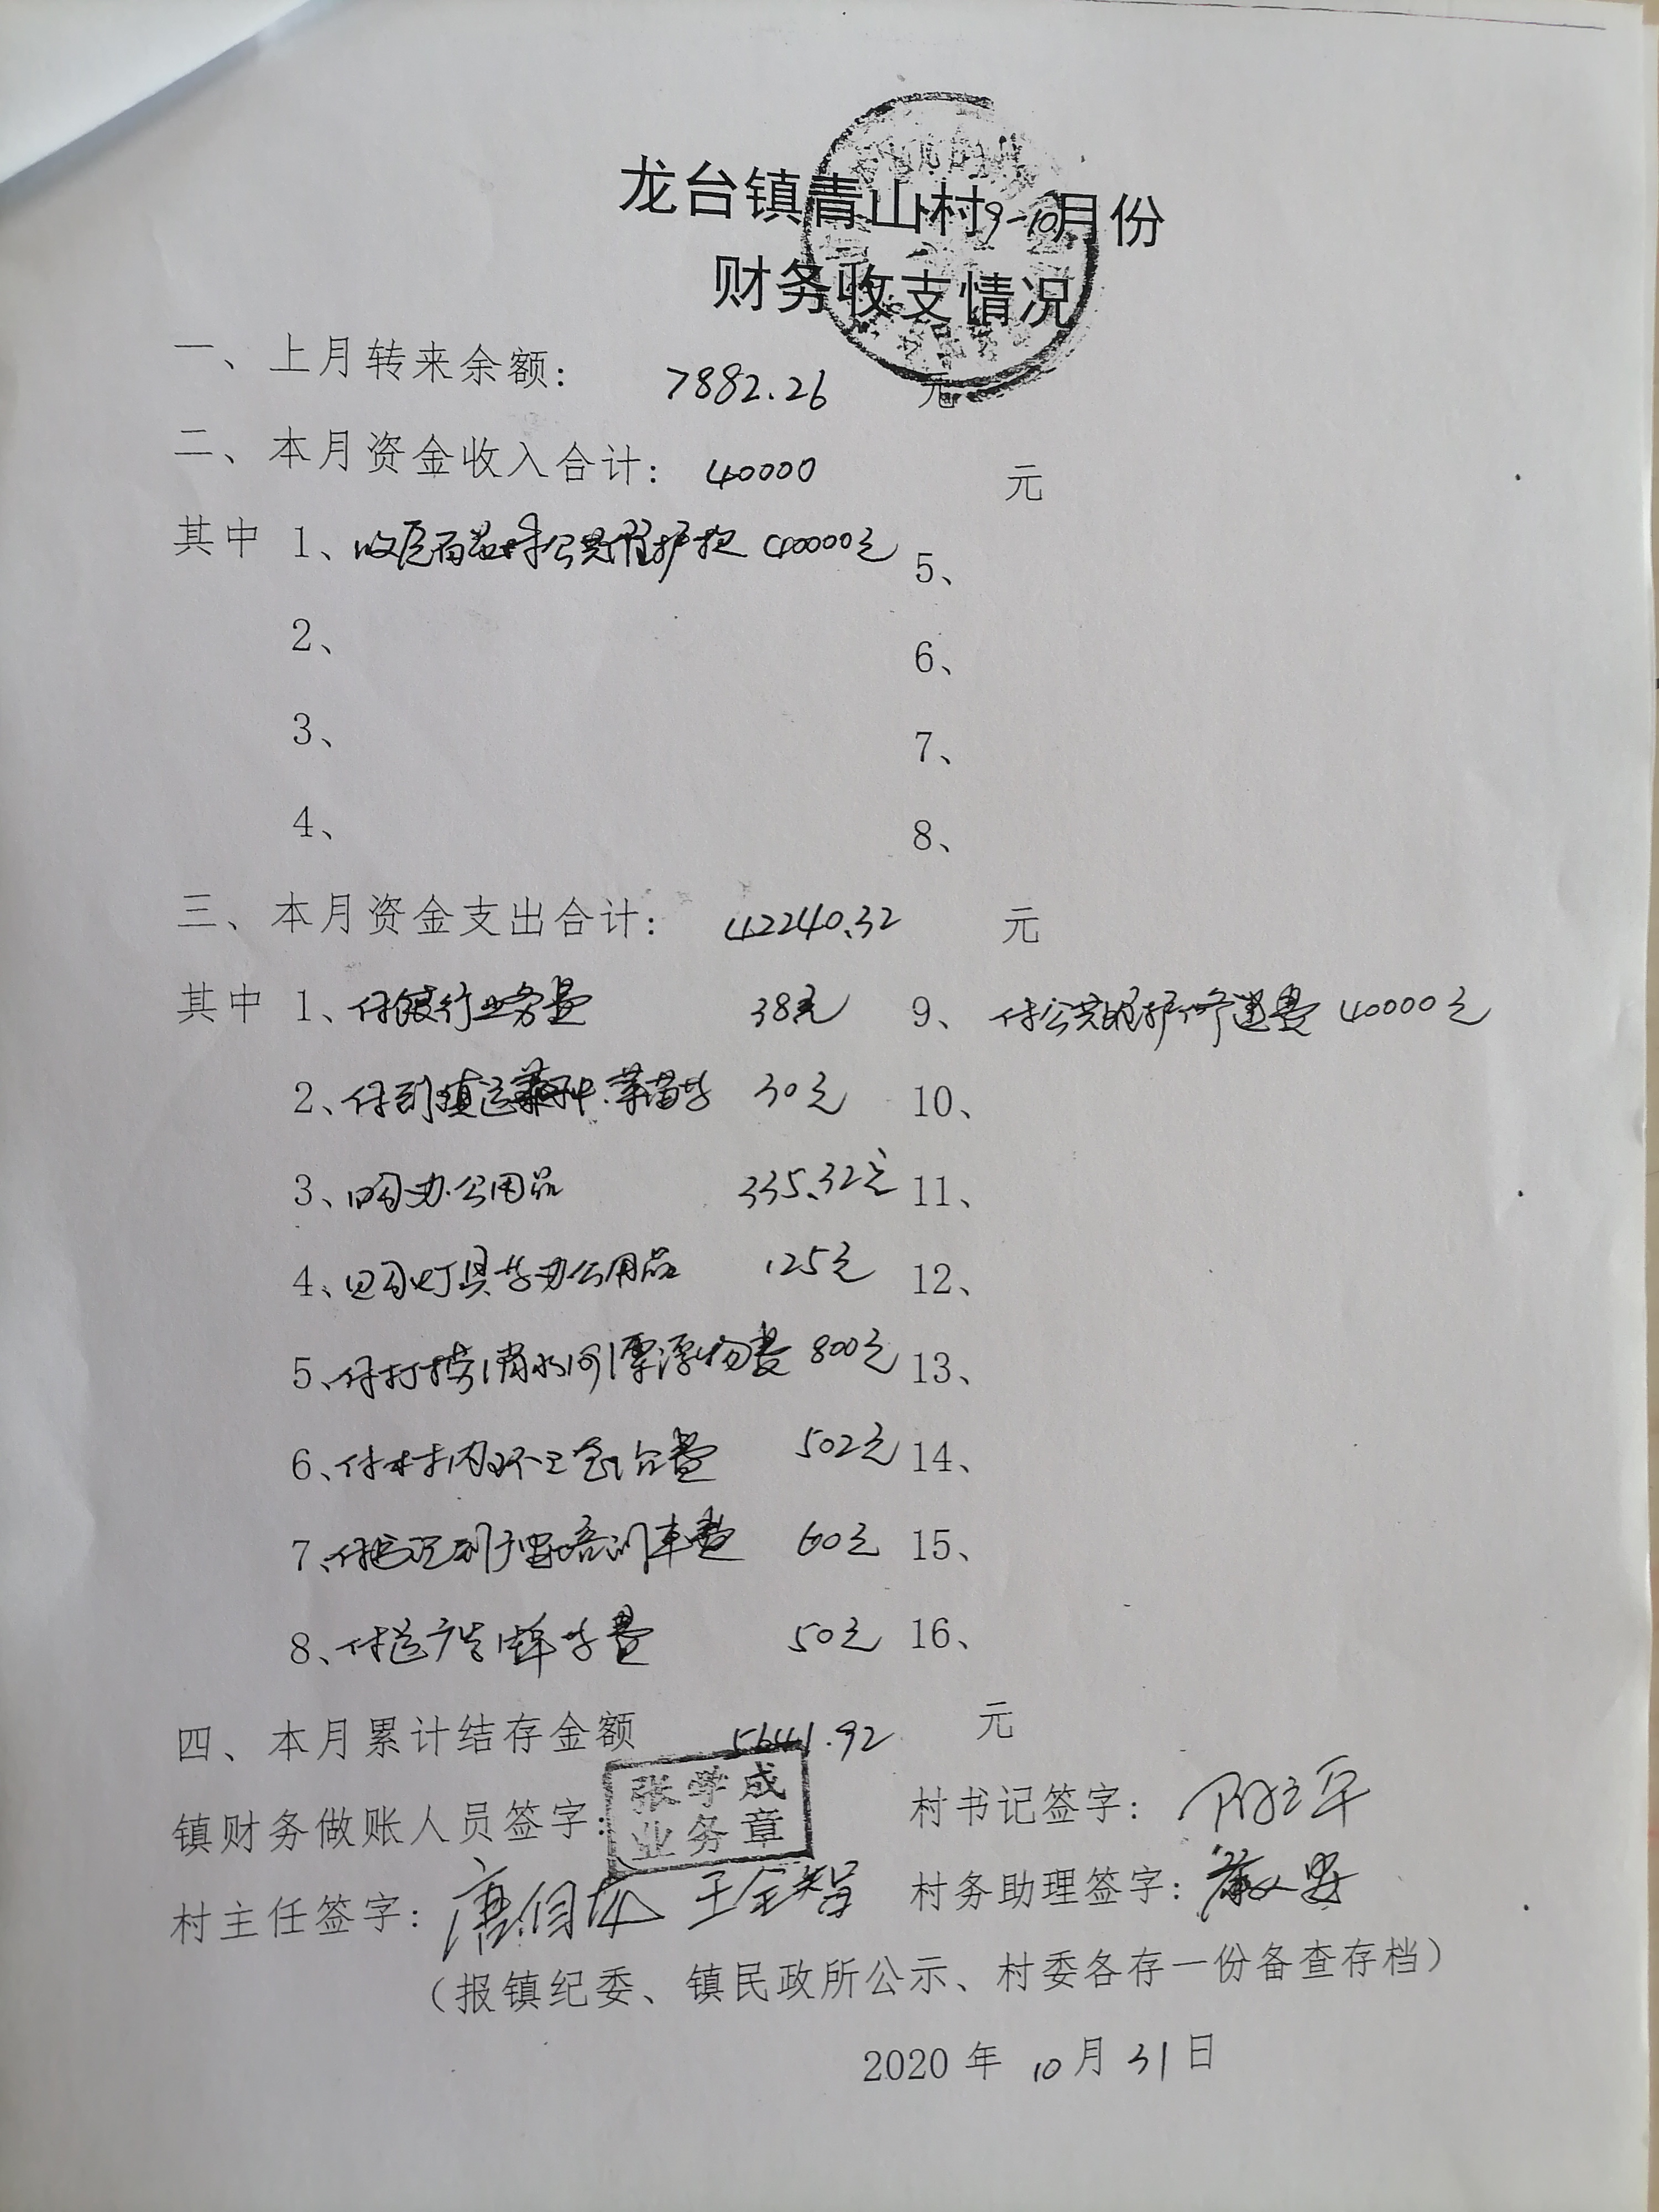 龙台镇青山村9-10月份
财务收支情况
一、上月转来余额： 7882.26 元
二、本月资金收入合计： 40000 元
其中 1、收 公共维护款 40000元 5、
2、 6、
3、 7、
4、 8、
三、本月资金支出合计： 42240.32 元
其中 1、付银行业务费 38元 9、付公共维护修道费 40000元
2、付到镇运 菜苗等 30元 10、
3、购办公用品 335.32元 11、
4、购灯具等办公用品 125元 12、
5、付打捞清水河漂浮物费 800元 13、
6、付村内环卫 费 502元 14、
7、付 培训车费 60元 15、
8、付运广告牌等费 50元 16、
四、本月累计结存金额 5641.92 元
镇财务做账人员签字： 张学成 业务章 村书记签字：
村主任签字： 唐 王全智 村务助理签字：
（报镇纪委、镇民政所公示、村委各存一份备查存档）
2020年 10月31日